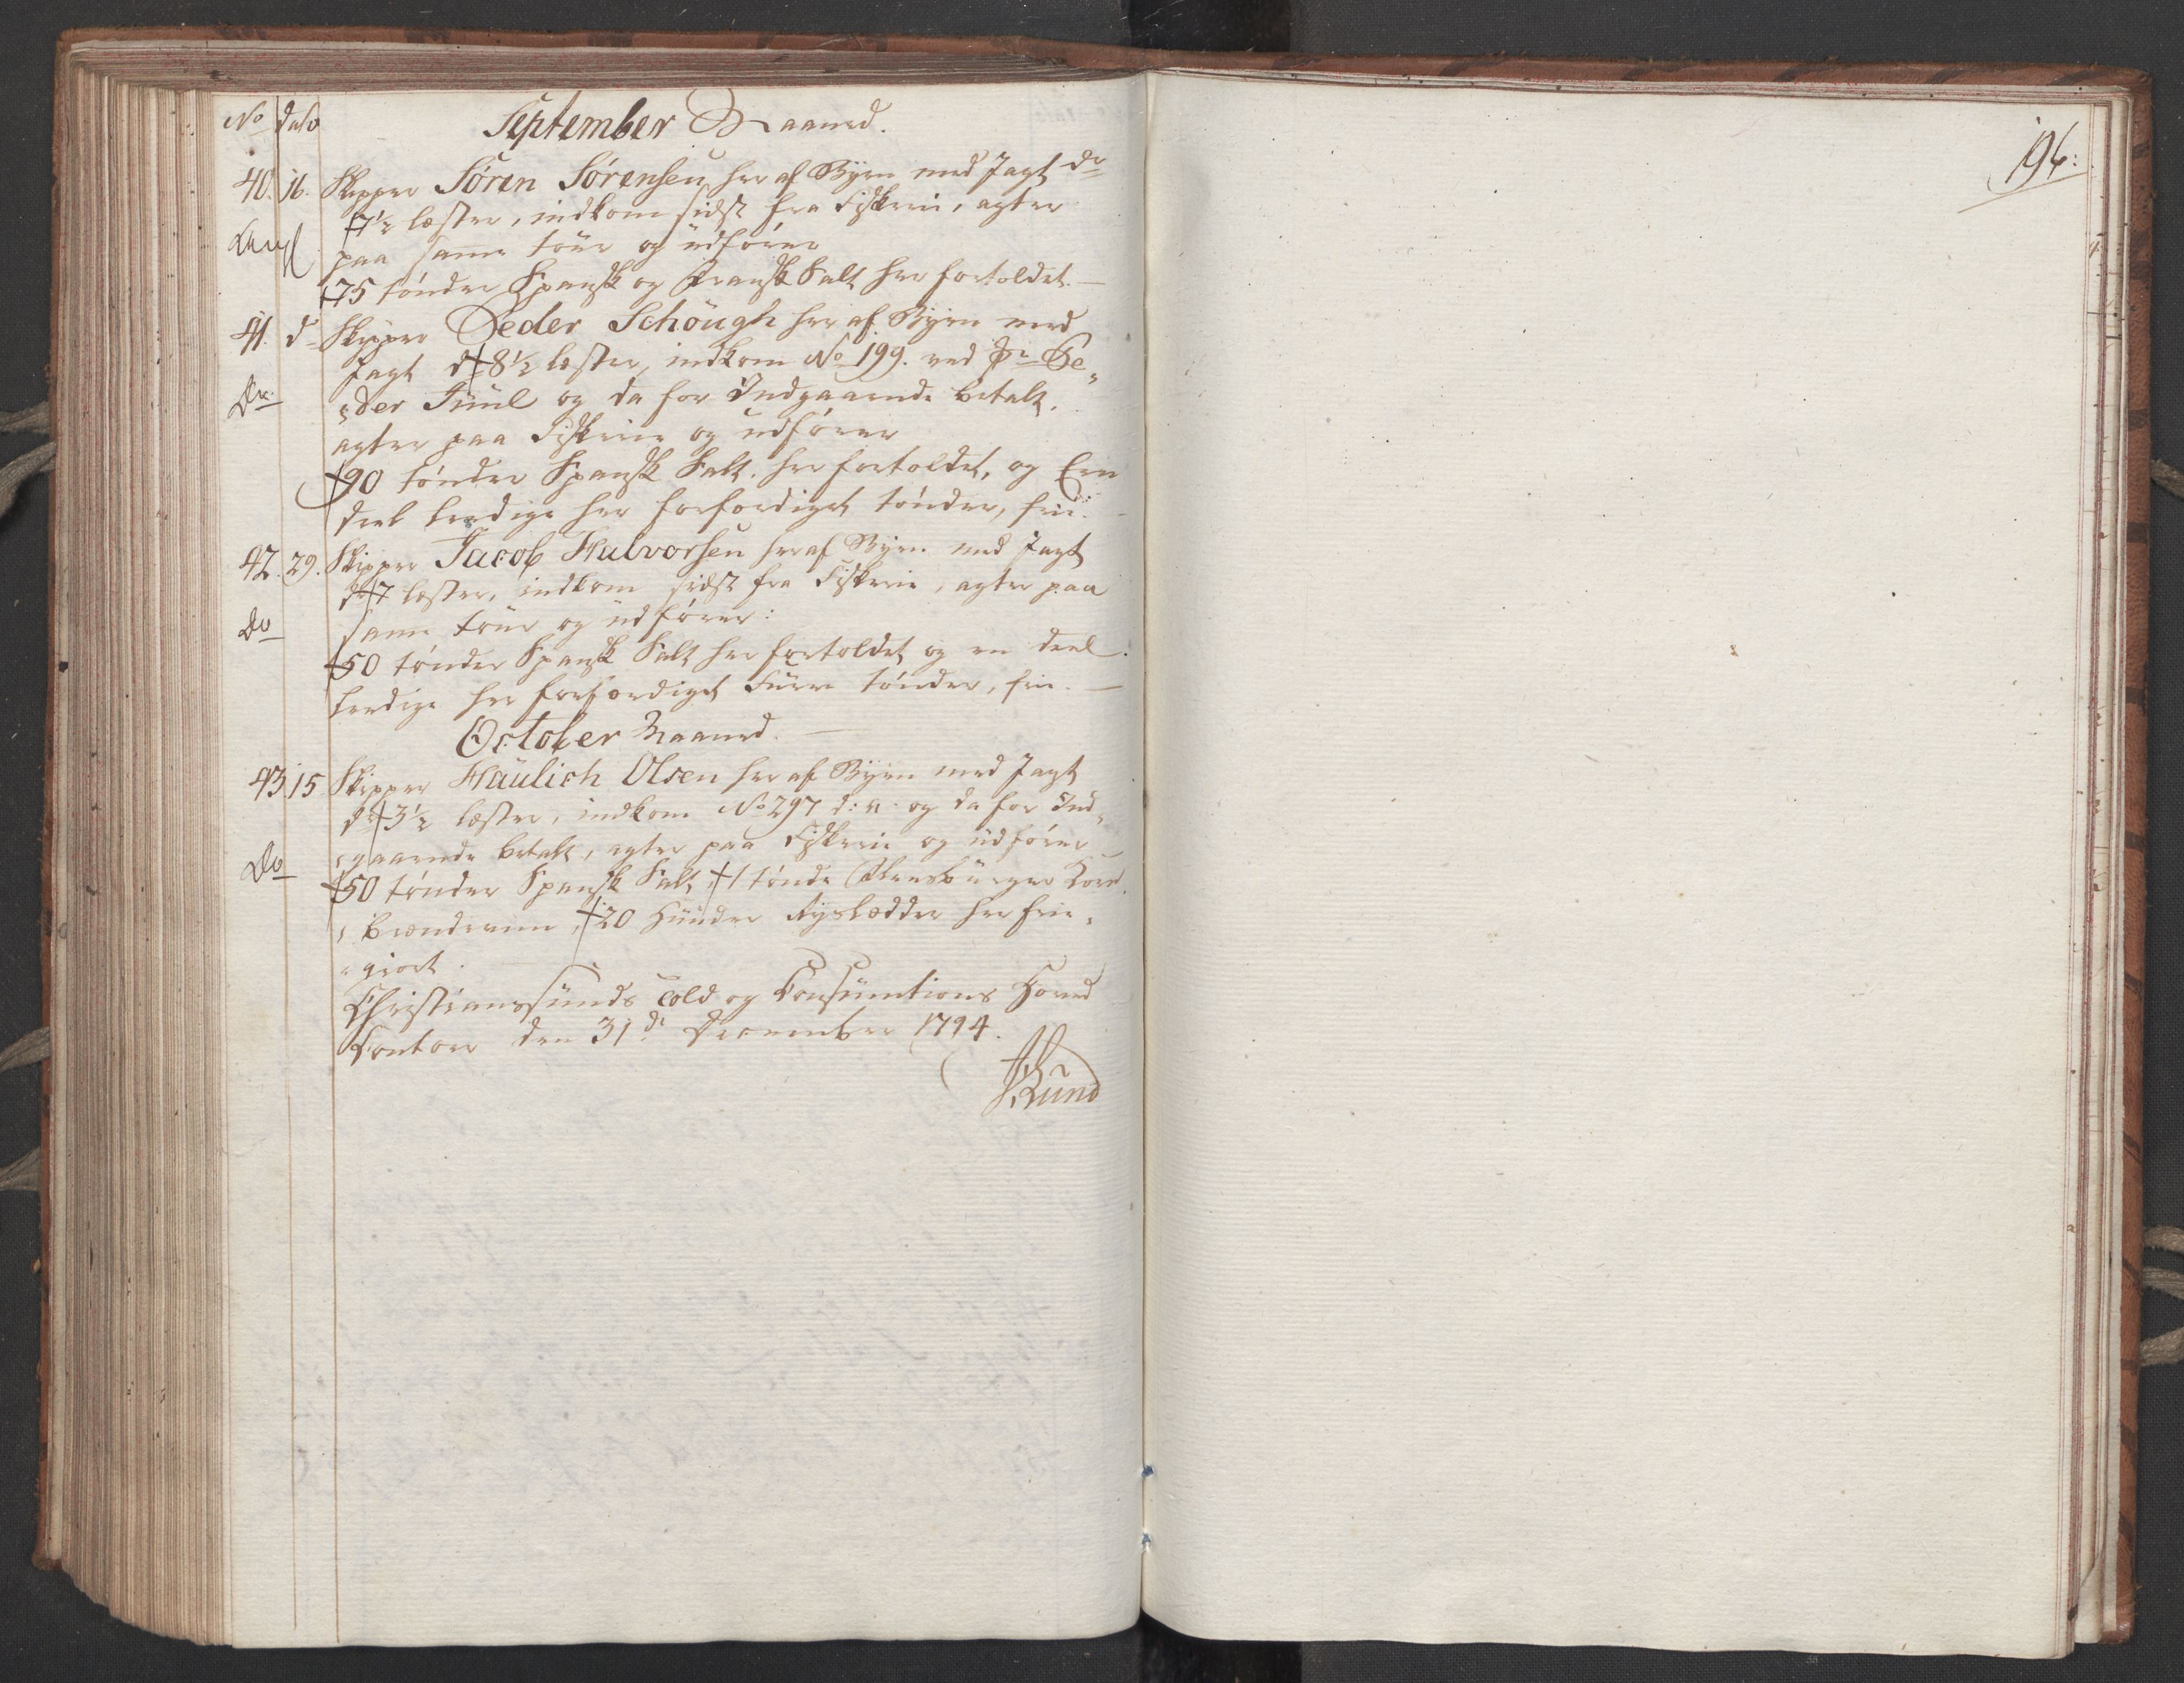 No dato September Maaned.
40. 16. Skipper Sören Sörensen her af Byen med Jagt dr:
7 1/2 læster, indkom sidst fra Fiskerie, agter
paa samme tour og udfører
75 tønder Spansk og Fransk Salt her fortoldet. —
41. d Skipper Peder Schöugh her af Byen med
Jagt dr: 8 1/2 læster, indkom No 199. ved Sr Pe„
Do „der Juul og da for Indgaaende betalt,
agter paa Fiskerie og udfører
90 tønder Spansk Salt her fortoldet, og Een
deel ledige her forfærdiget tønder, frie. —
42. 29. Skipper Jacob Halvorsen her af Byen med Jagt
dr: 7 læster, indkom sidst fra Fiskerie, agter paa
Do samme tour og udfører:
50 tønder Spansk Salt her fortoldet og en deel
ledige her forfærdiget Furre tønder, frie. —
October Maaned. —
43. 15 Skipper Haulich Olsen her af Byen med Jagt
dr: 3 1/2 læster, indkom No 297 d: A: og da for Ind„
„gaaende betalt, agter paa Fiskerie og udfører
Do 50 tønder Spansk Salt, 1 tønde Flensburger Korn
„ Brændeviin, 20 Hunder Ryslædder her frie„
„giort.
Christianssunds Told og Consumtions Hoved
Contoir den 31de December 1794.
Lund
196: